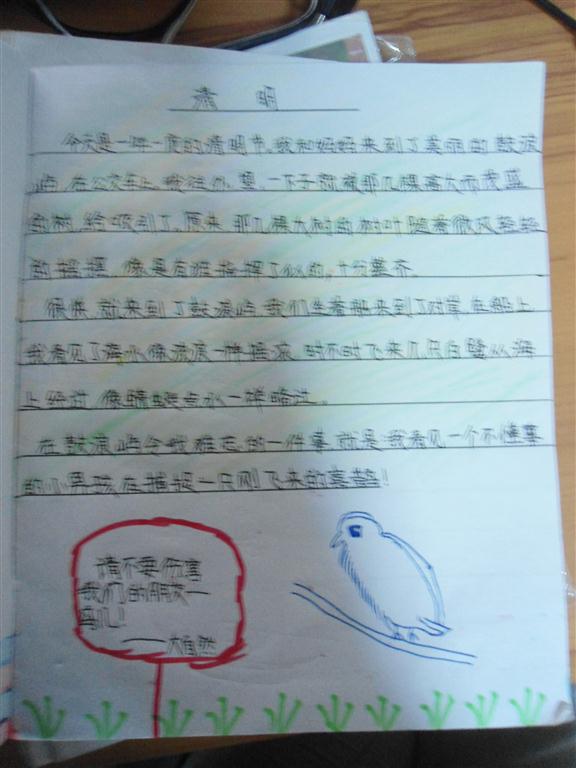 清明
今天是一年一度的清明节,我和妈妈来到了美丽的鼓浪
屿,在公交车上,我往外望,一下子就被那几棵高大而茂盛
的树,给吸引了,原来那几棵大树的树叶随着微风轻轻
的摇摆,像是有谁指挥了似的,十分整齐.
很快,就来到了鼓浪屿,我们坐着船来到了对岸,在船上
我看见了海水像波浪一样摇滚,时不时飞来几只白鹭从海
上经过,像蜻蜓点水一样略过。
在鼓浪屿令我难忘的一件事,就是:我看见一个不懂事
的小男孩在捕捉一只刚飞来的喜鹊!
请不要伤害
我们的朋友一
鸟儿!
——大自然